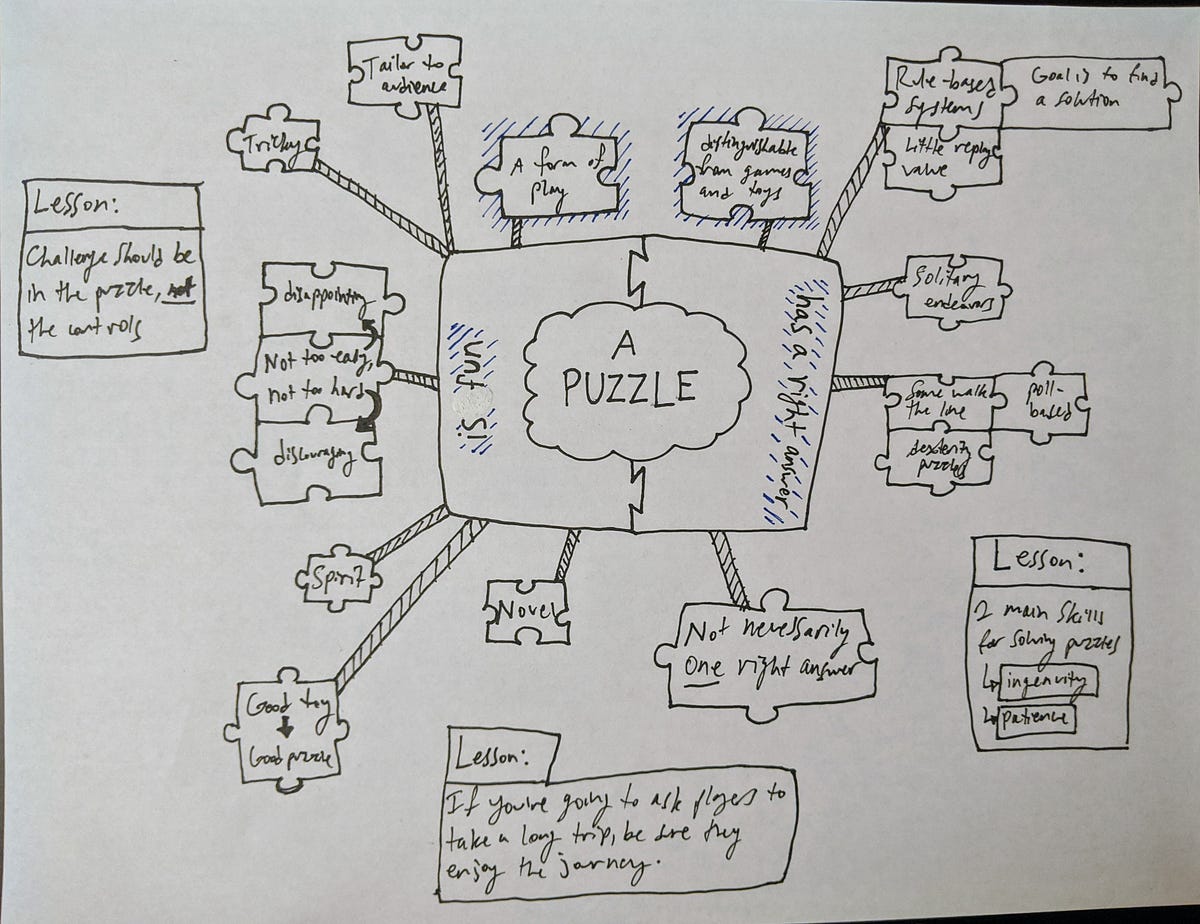 Tailor to
audience
Tricky
A form of
play
distinguishable
from games
and toys
Rule-based
systems
Goal is to find
a solution
Little replay
value
Lesson:
Challenge should be
in the puzzle, not
the controls
disappointing
Not too easy,
not too hard
discouraging
is fun
A
PUZZLE
has a right answer
Solitary
endeavors
Some walk
the line
poll-
based
dexterity
puzzles
Spirit
Novel
Not necessarily
One right answer
Good toy
Good puzzle
Lesson:
2 main skills
for solving puzzles
ingenuity
patience
Lesson:
If you're going to ask players to
take a long trip, be sure they
enjoy the journey.